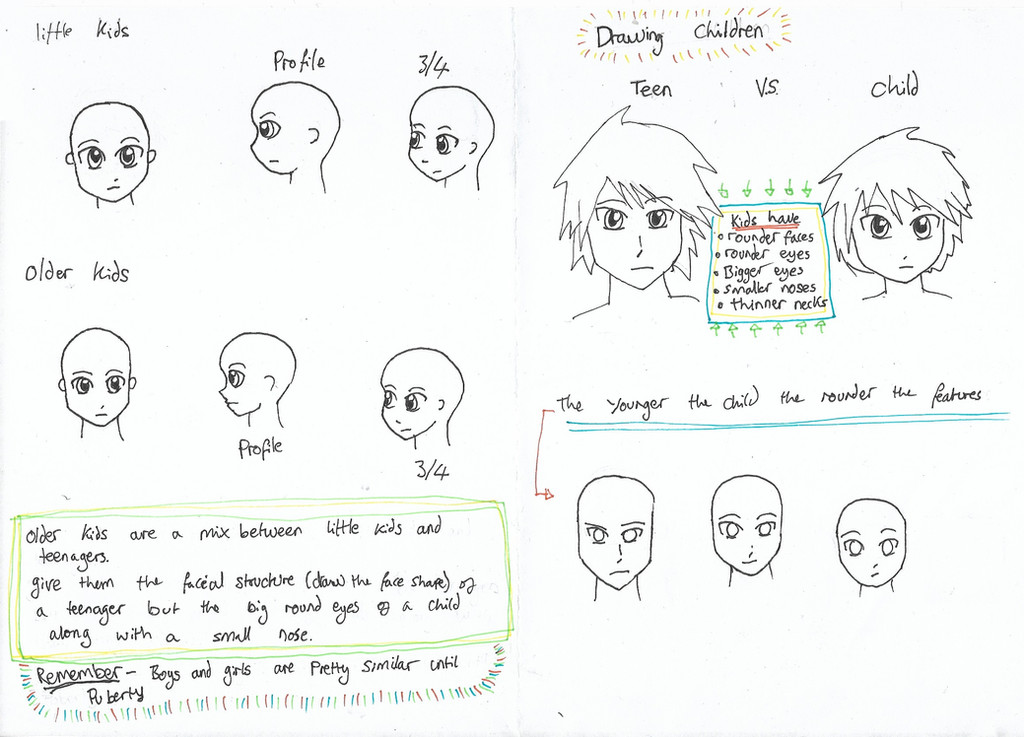 little kids
Profile
3/4
Older kids
Profile
3/4
Older kids are a mix between little kids and
teenagers.
give them the faceal structure (draw the face shape) of
a teenager but the big round eyes of a child
along with a small nose.
Remember - Boys and girls are Pretty similar until
Puberty
Drawing Children
Teen V.S. Child
Kids have
rounder faces
rounder eyes
Bigger eyes
smaller noses
thinner necks
The younger the child the rounder the features